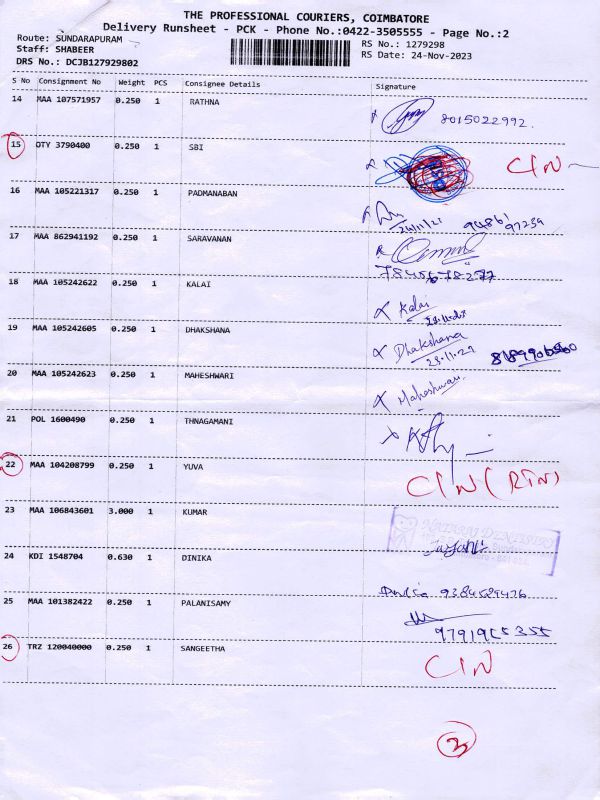 THE PROFESSIONAL COURIERS, COIMBATORE
Delivery Runsheet - PCK - Phone No.:0422-3505555 - Page No.:2
Route: SUNDARAPURAM RS No.: 1279298
Staff: SHABEER RS Date: 24-Nov-2023
DRS No.: DCJB127929802
S No Consignment No Weight PCS Consignee Details Signature
14 MAA 107571957 0.250 1 RATHNA 8015022992.
15 OTY 3790400 0.250 1 SBI CIN
16 MAA 105221317 0.250 1 PADMANABAN
17 MAA 862941192 0.250 1 SARAVANAN
18 MAA 105242622 0.250 1 KALAI Kalai
19 MAA 105242605 0.250 1 DHAKSHANA Dhakshana
20 MAA 105242623 0.250 1 MAHESHWARI Maheshwari
21 POL 1600490 0.250 1 THNAGAMANI
22 MAA 104208799 0.250 1 YUVA CIN (RTN)
23 MAA 106843601 3.000 1 KUMAR
24 KDI 1548704 0.630 1 DINIKA
25 MAA 101382422 0.250 1 PALANISAMY
26 TRZ 120040000 0.250 1 SANGEETHA CIN
3